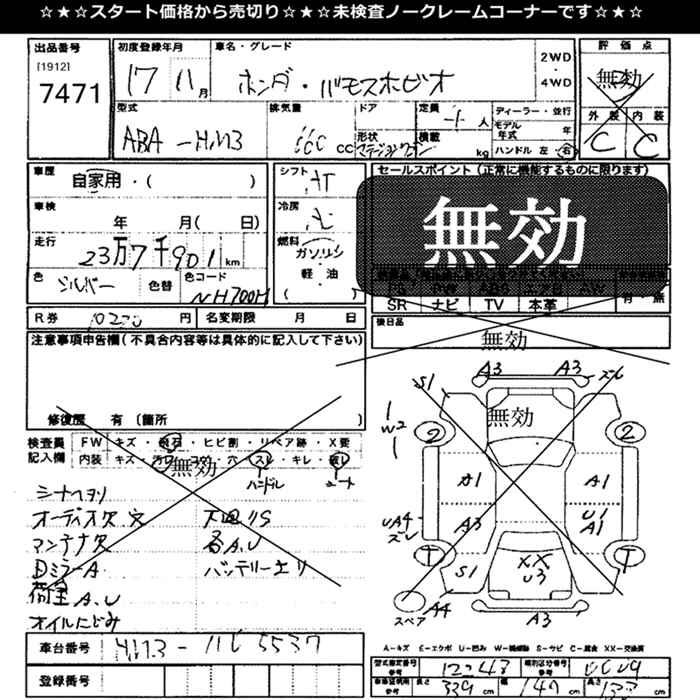 ☆★☆スタート価格から売切り☆★☆未検査ノークレームコーナーです☆★☆
出品番号 初度登録年月 車名・グレード 評価点
[1912]
7471
17 11月 ホンダ・バモスホビオ 2WD・4WD 無効
型式 排気量 ドア 定員 ディーラー・並行 外装 内装
ABA-HM3 660 CC 形状 人 モデル年式 年 C C
積載 kg ハンドル 左・右
車歴 自家用・( ) シフト AT セールスポイント (正常に機能するものに限ります)
車検 年 月( 日) 冷房 AC
無効
走行 23万7千901km 燃料 ガソリン
軽・油
( )
色 シルバー 色替 色コード NH700M
SR ナビ TV 本革 有・無
R券 10230円 名変期限 月 日 後日品
無効
注意事項申告欄(不具合内容等は具体的に記入して下さい)
修復歴 有 (箇所 )
検査員記入欄 FW キズ・飛石・ヒビ割・リペア跡・X要
内装 キズ・ ・穴・スレ・キレ・
無効
ハンドル シート
オーディオ欠.穴 下回りS
アンテナ欠 各A.U
DミラーA バッテリー上リ
荷室A.U
オイルにじみ
A3 A3 ズレ
S1
無効
W2
2 2
A1 A1
UA4 ズレ A3 U1 A1
T T
S1 XX U3
スペア A4 A3
A-キズ E-エクボ U-凹み W-補修跡 S-サビ C-腐食 XX-交換済
車台番号 HM3-
登録番号
型式指定番号 参考 12243 類別区分番号 参考
車検証記載 参考 長さ 339cm 幅 147cm 高さ cm